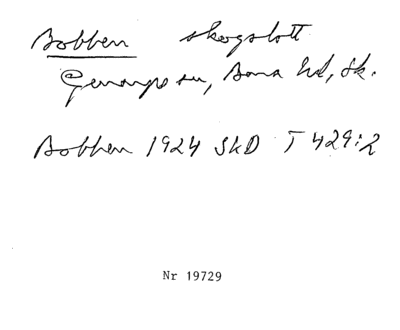 Bobben skogslott
Genarps sn, Bara hd, Sk.
Bobben 1924 SkD T 429:2
Nr 19729